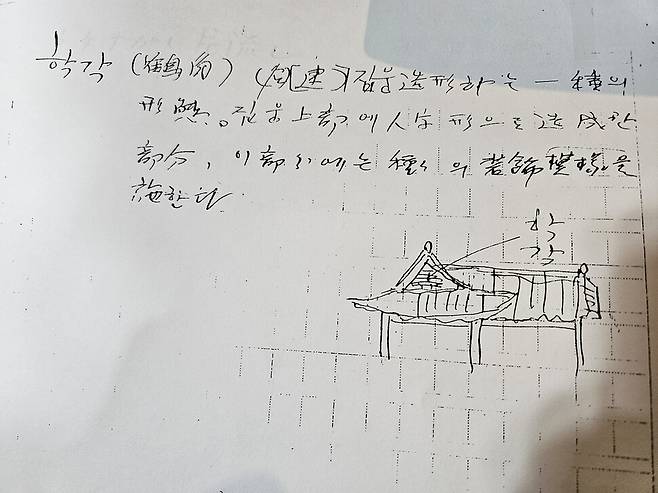 학각 (鶴角) (建) 지붕 造形하는 一種의
形態。 지붕 上部에 人字形으로 造成한
部分, 이 部分에는 種々의 装飾 模様을
施한다
학
각